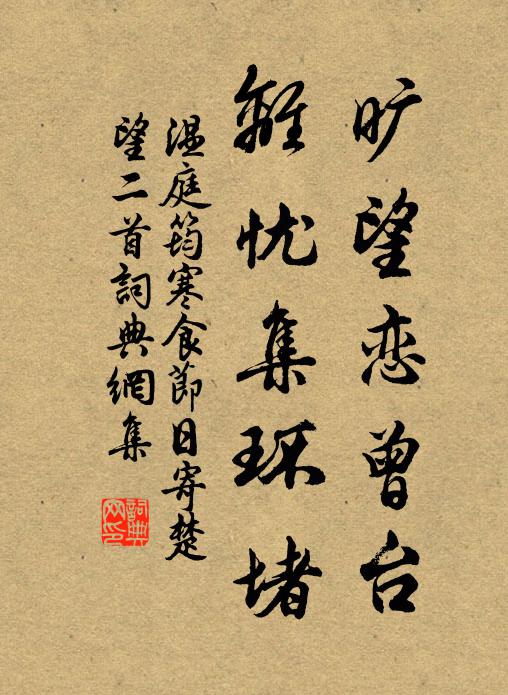 旷望恋曾台
離忧集环堵
温庭筠寒食節日寄楚
望二首詞典網集
詞典
网印